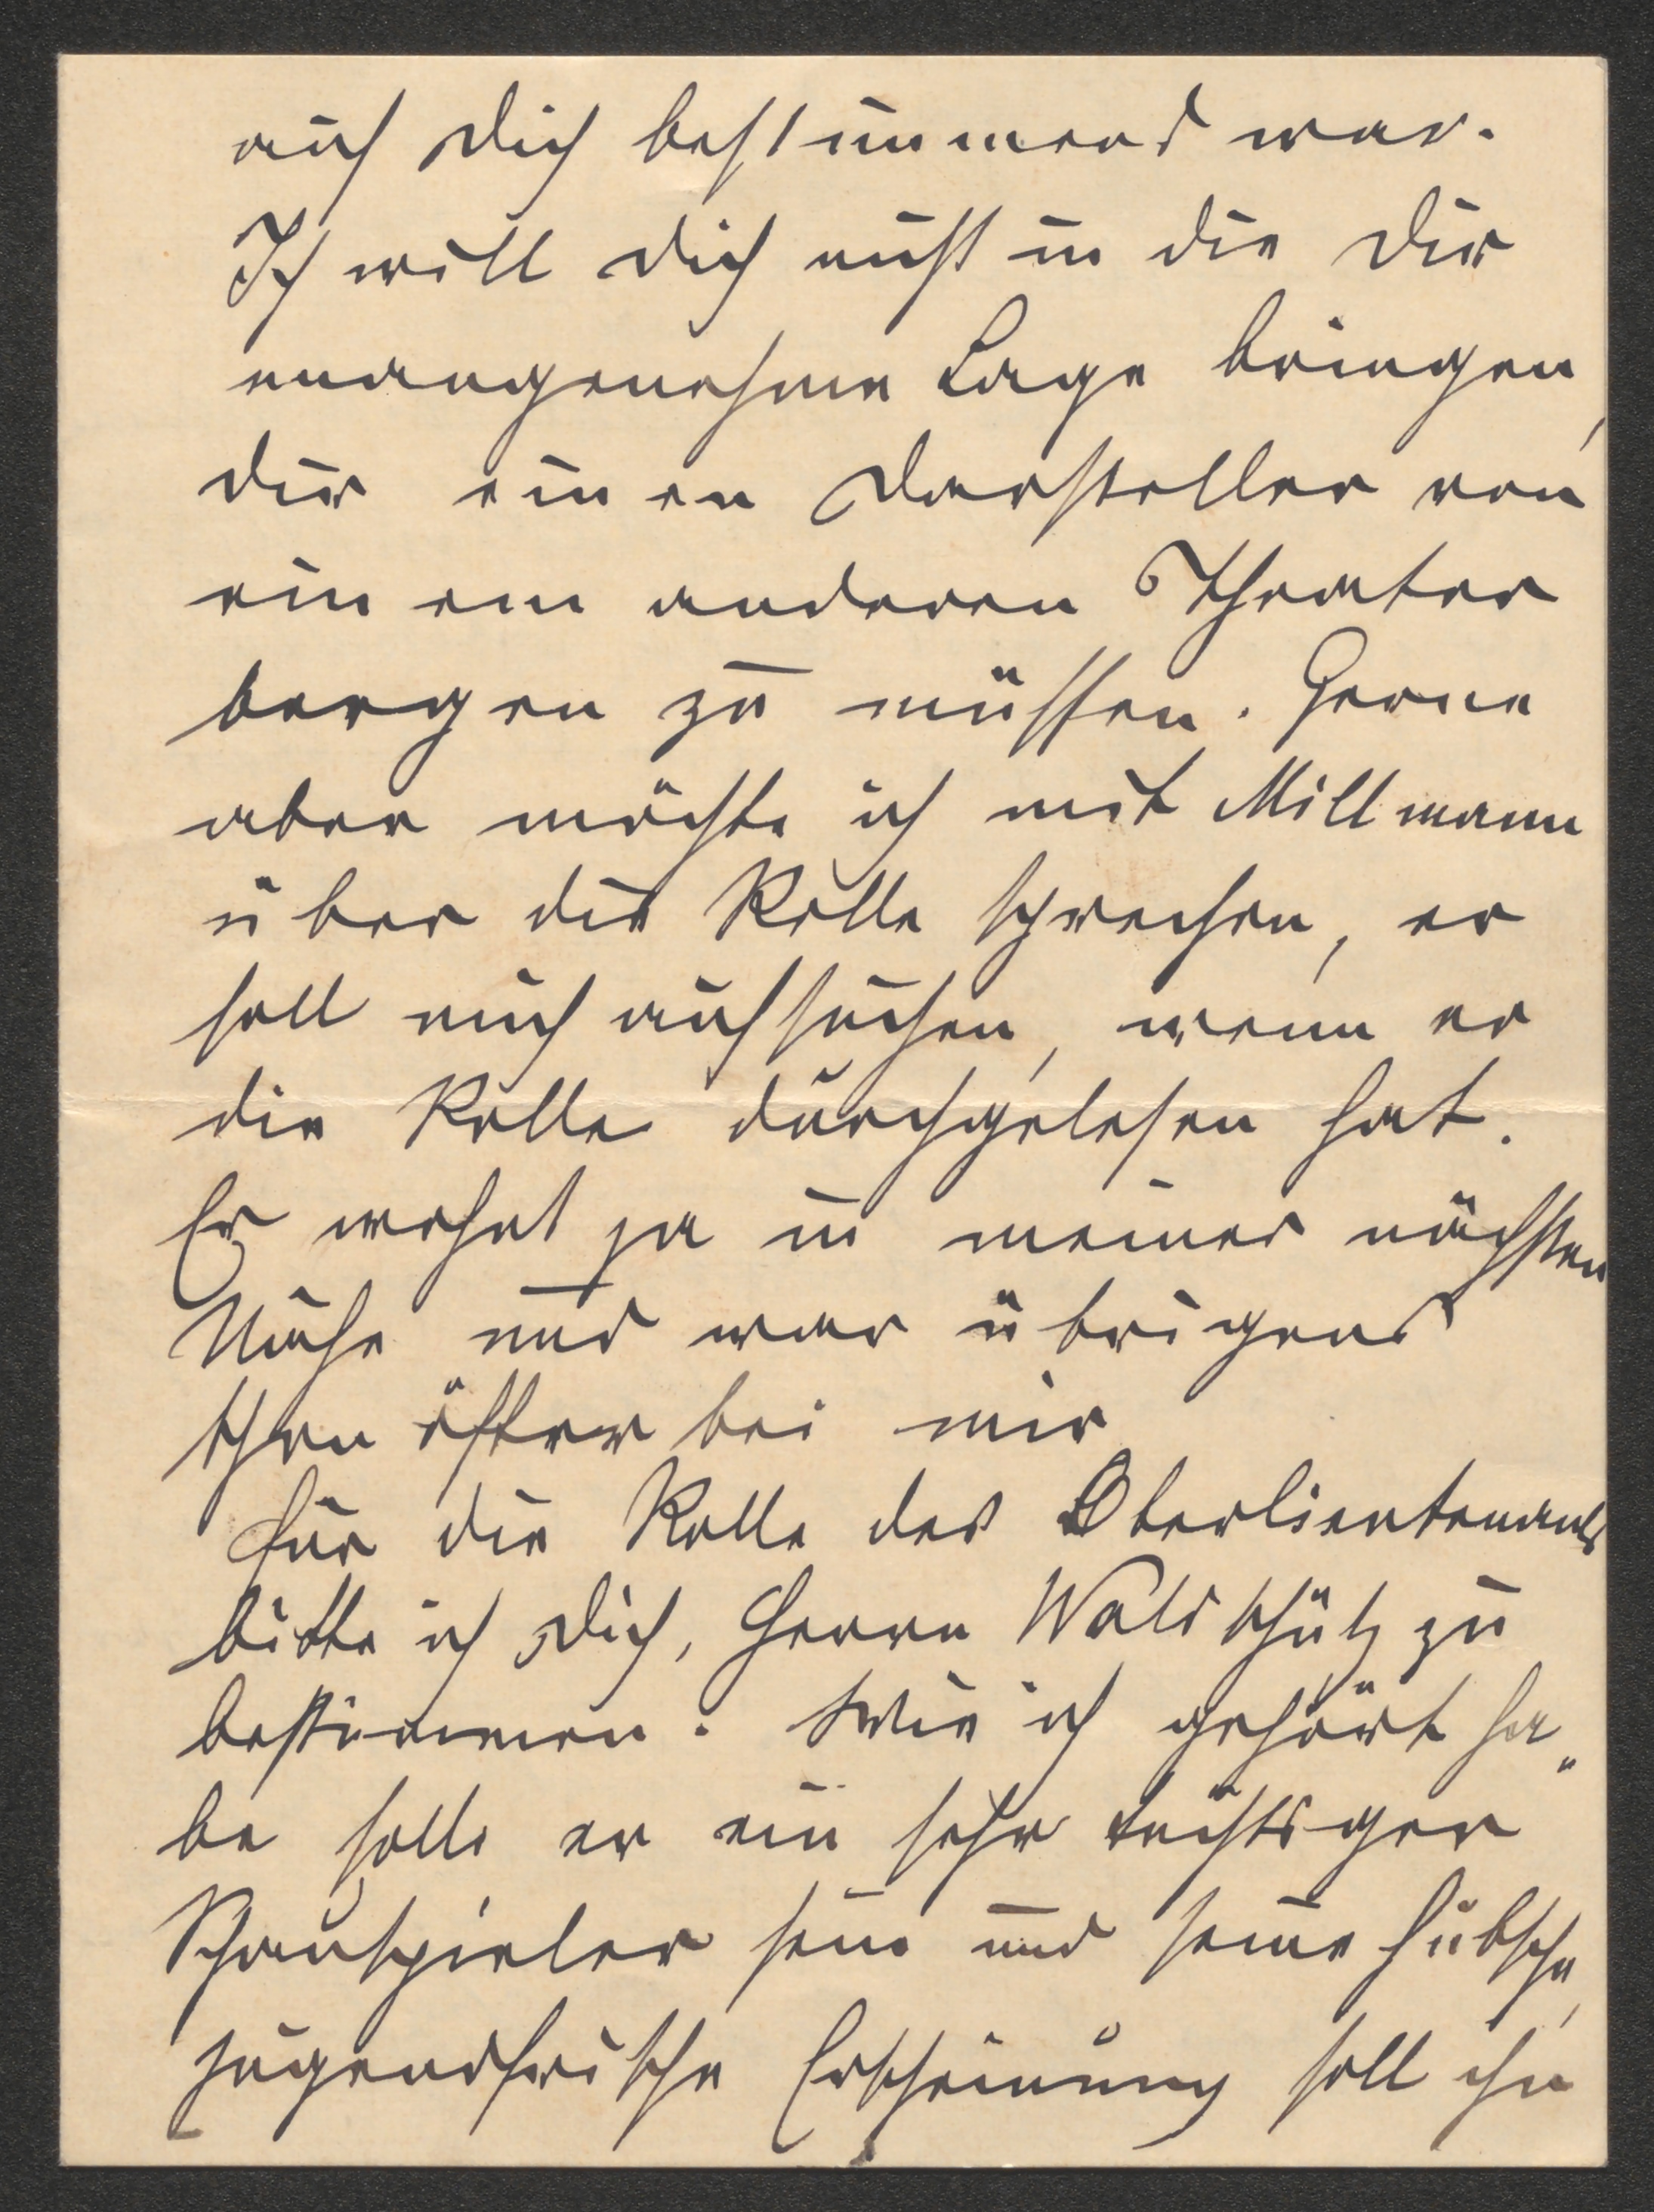 auf Dich bestimmend war.
Ich will Dich nicht in die Dir
unangenehme Lage bringen,
Dir einen Darsteller von
einem anderen Theater
borgen zu müssen. Gerne
aber möchte ich mit Millmann
über die Rolle sprechen, er
soll mich aufsuchen, wenn er
die Rolle durchgelesen hat.
Er wohnt ja in meiner nächsten
Nähe und war übrigens
schon öfter bei mir
Für die Rolle des Oberlieutenants
bitte ich Dich, Herrn Waldschütz zu
bestimmen. Wie ich gehört ha„
be soll er ein sehr tüchtiger
Schauspieler sein und seine hübsche,
jugendfrische Erscheinung soll ihn